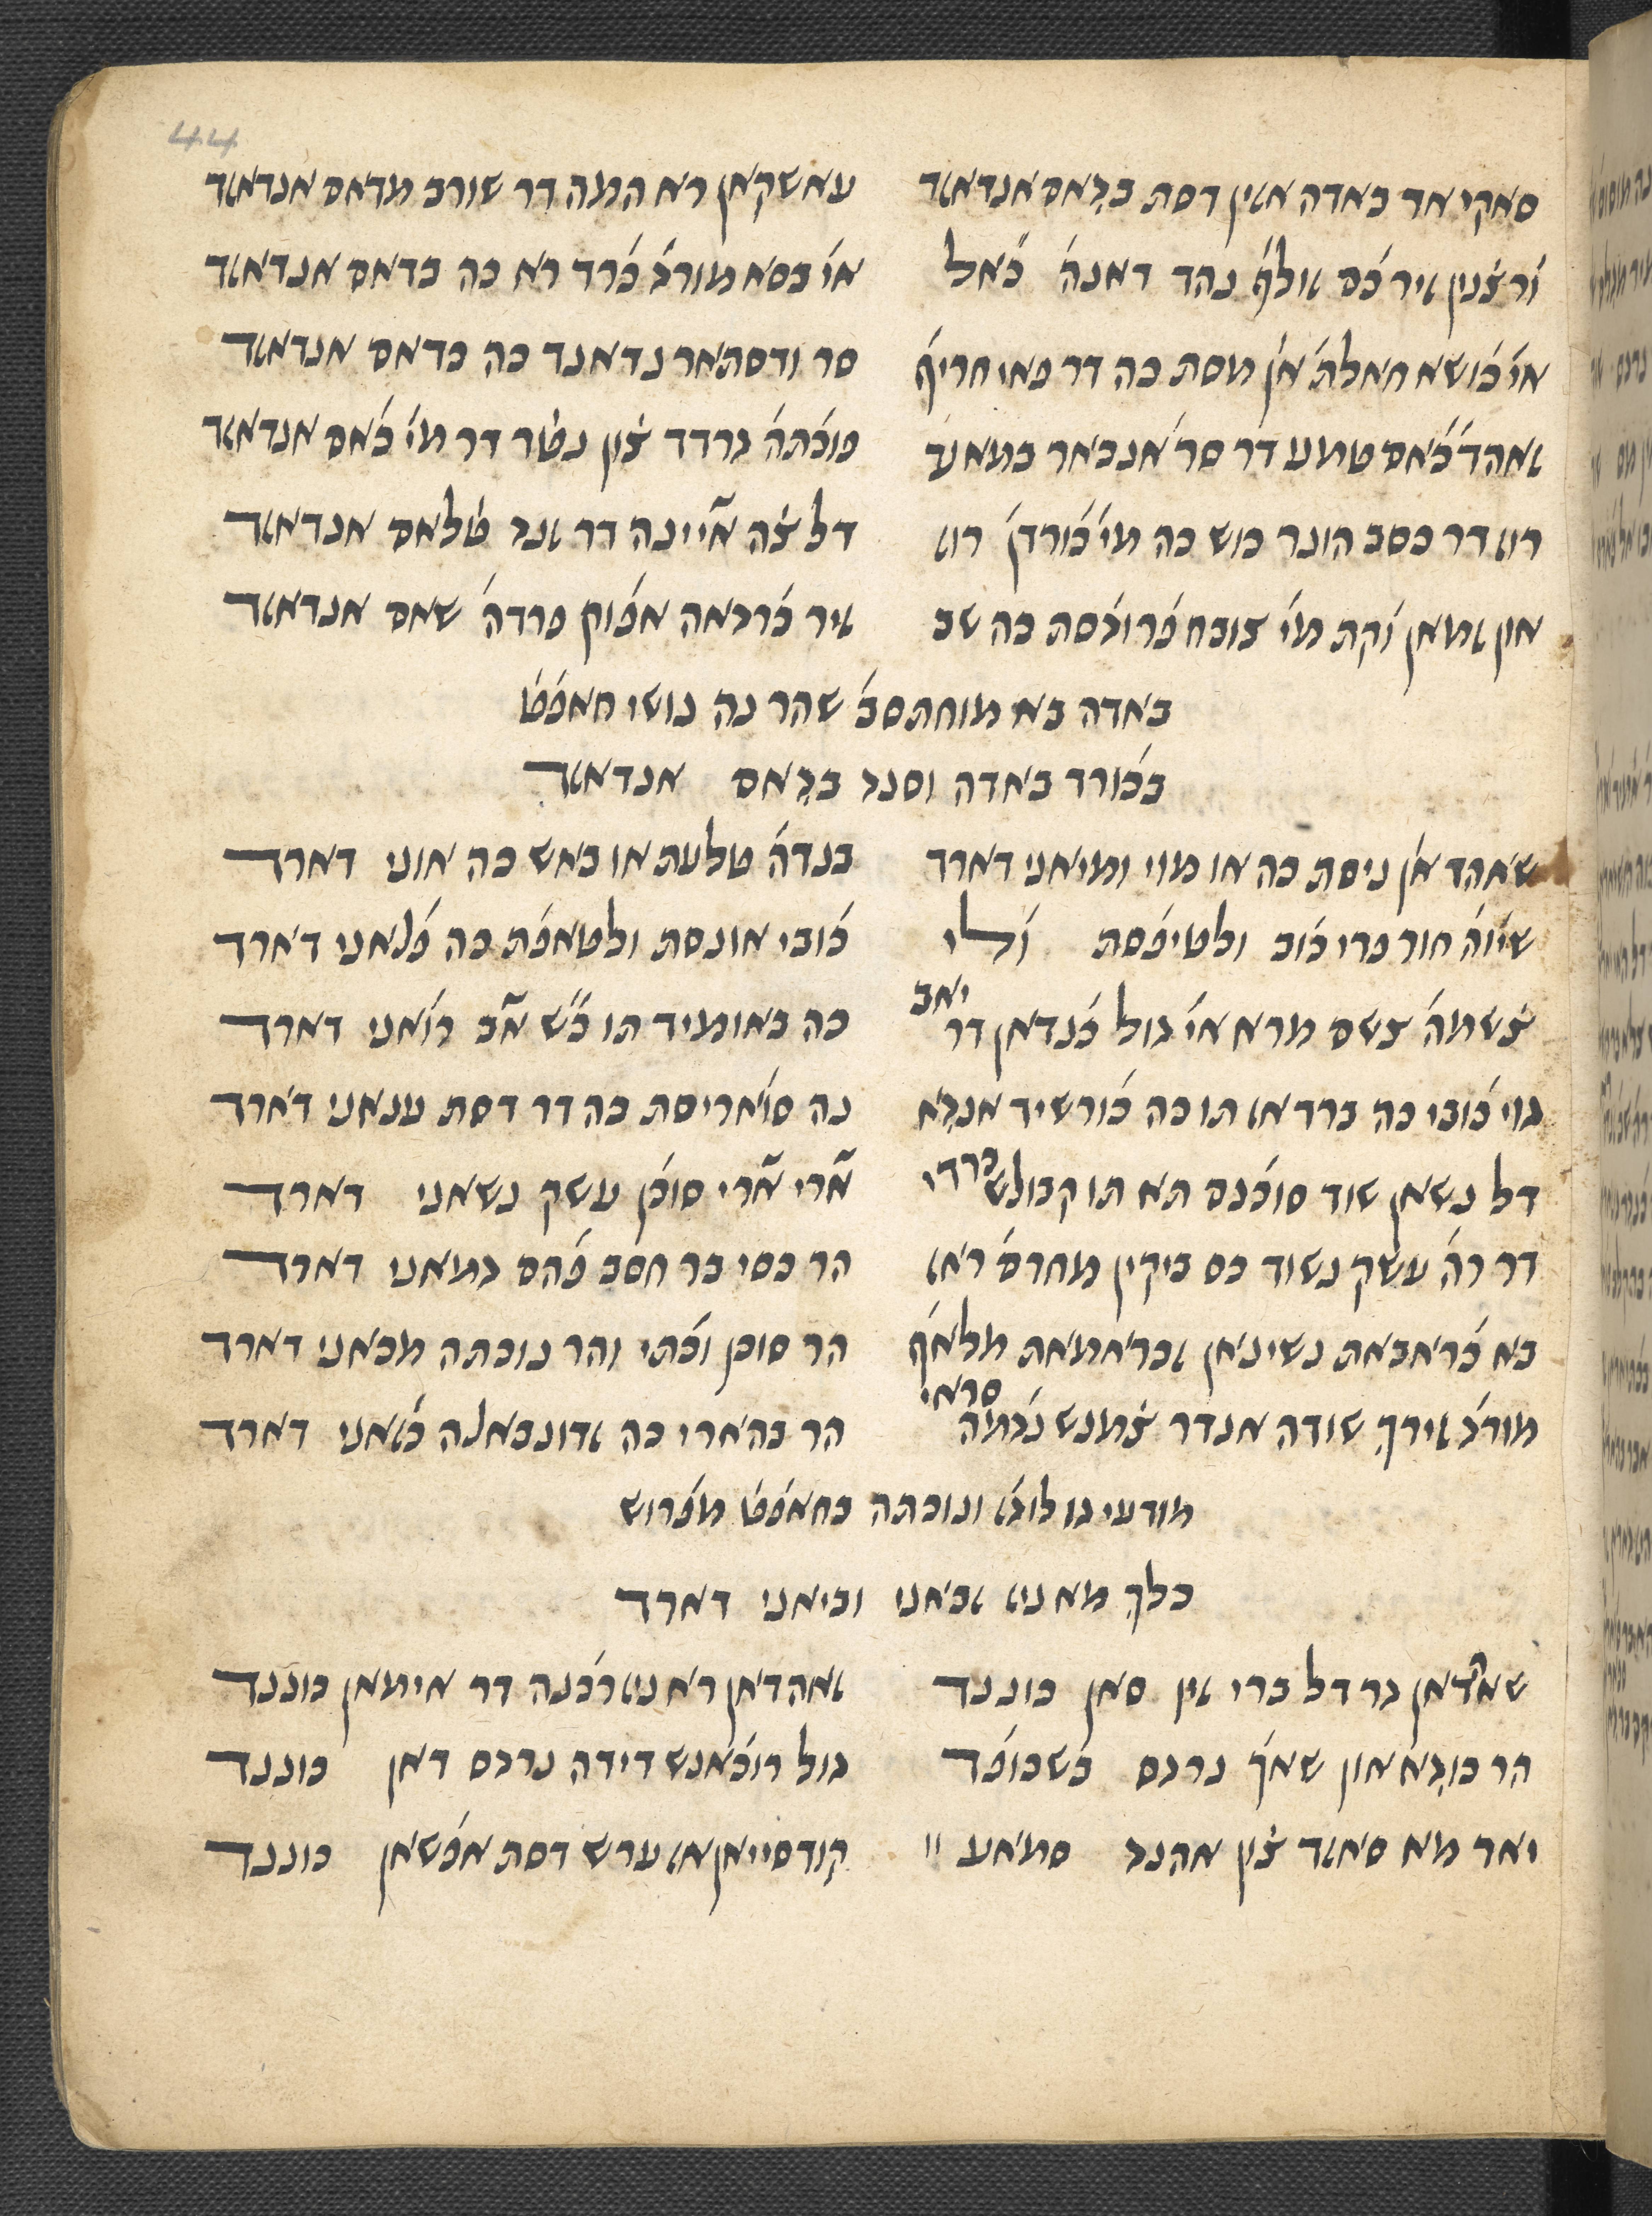 44
סאקי אר באדה אזין דסת בגאם אנדאזד עאשקאן רא המה דר שורב מדאם אנדאזד
ור צנין זיר כם זולף נהד דאנה כאל אי בסא מורג כרד רא כה בדאם אנדאזד
אי כושא חאלת אן מסת כה דר פאי חריף סר ודסתאר נדאנד כה כדאם אנדאזד
זאהד כאם טמע דר סר אנכאר במאנד פוכתה גרדד צון נטר דר מי כאם אנדאזד
רוז דר כסב הונר כוש כה מי כורדן רוז דל צה איינה דר זנג טלאם אנדאזד
און זמאן וקת מי צובח פרוגסת כה שב זיר כרגאה אפוק פרדה שאם אנדאזד
באדה בא מוחתסב שהר נה נושי חאפט
בכורד באדה וסנג בגאם אנדאזד
שאהד אן ניסת כה או מוי ומיאני דארד בנדה טלעת או באש כה אוני דארד
שיוה חור פרי כוב ולטיפסת ולי כובי אונסת ולטאפת כה פלאני דארד
צשמה צשם מרא אי גול כנדאן דר יאב כה באומיד תו כש אב רואני דארד
גוי כובי כה ברד אז תו כה כורשיד אנגא נה סואריסת כה דר דסת ענאני דארד
דל נשאן שוד סוכנם תא תו קבולש כרדי ארי ארי סוכן עשק נשאני דארד
דר רה עשק נשוד כס ביקין מחרם ראז הר כסי בר חסב פהם גמאני דארד
בא כראבאת נשינאן זכראמאת מלאף הר סוכן וכתי והר נוכתה מכאני דארד
מורג זירך שודה אנדר צמנש נגמה סראי הר בהארי כה זדונבאלה כזאני דארד
מודעי גו לוגז ונוכתה בחאפט מפרוש
כלך מא ניז זבאני וביאני דארד
שאהדאן גר דל ברי זין סאן כוננד זאהדאן רא ניז רכנה דר אימאן כוננד
הר כוגא און שאך נרגס בשכופד גול רוכאנש דידה נרגס דאן כוננד
יאר מא סאזד צון אהנג סמאע קודסייאן אז ערש דסת אפשאן כוננד